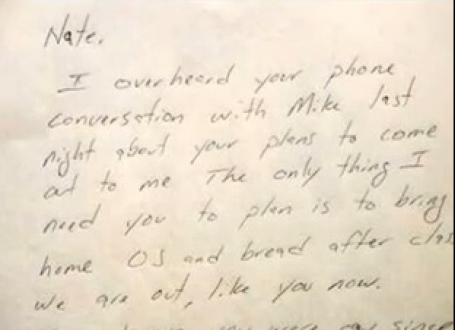 Nate,
I overheard your phone
conversation with Mike last
night about your plans to come
out to me The only thing I
need you to plan is to bring
home OJ and bread after class
we are out, like you now.
since